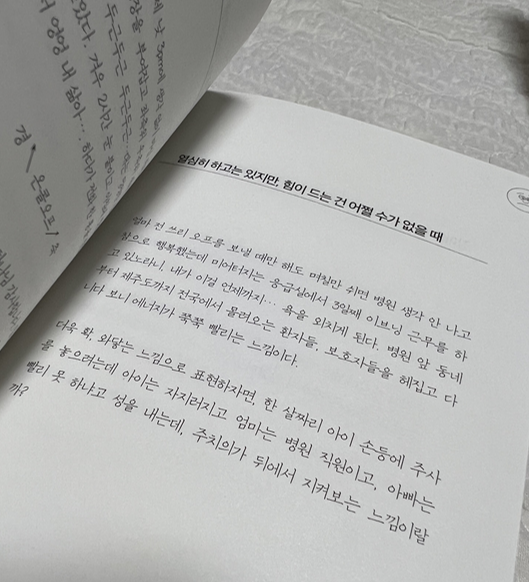 낮
두근두근 두근두근...
있다. 겨우 2시간 눈 붙이고
엉엉 내 삶아... 하다가
경 / 온콜오프! 축
열심히 하고는 있지만, 힘이 드는 건 어쩔 수가 없을 때
얼마 전 쓰리 오프를 보낼 때만 해도 며칠만 쉬면 병원 생각 안 나고
참으로 행복했는데 미어터지는 응급실에서 3일째 이브닝 근무를 하
고 있노라니, 내가 이걸 언제까지... 욕을 외치게 된다. 병원 앞 동네
부터 제주도까지 전국에서 몰려오는 환자들, 보호자들을 헤집고 다
니다 보니 에너지가 쭉쭉 빨리는 느낌이다.
더욱 확, 와닿는 느낌으로 표현하자면, 한 살짜리 아이 손등에 주사
를 놓으려는데 아이는 자지러지고 엄마는 병원 직원이고, 아빠는
빨리 못 하냐고 성을 내는데, 주치의가 뒤에서 지켜보는 느낌이랄
까?